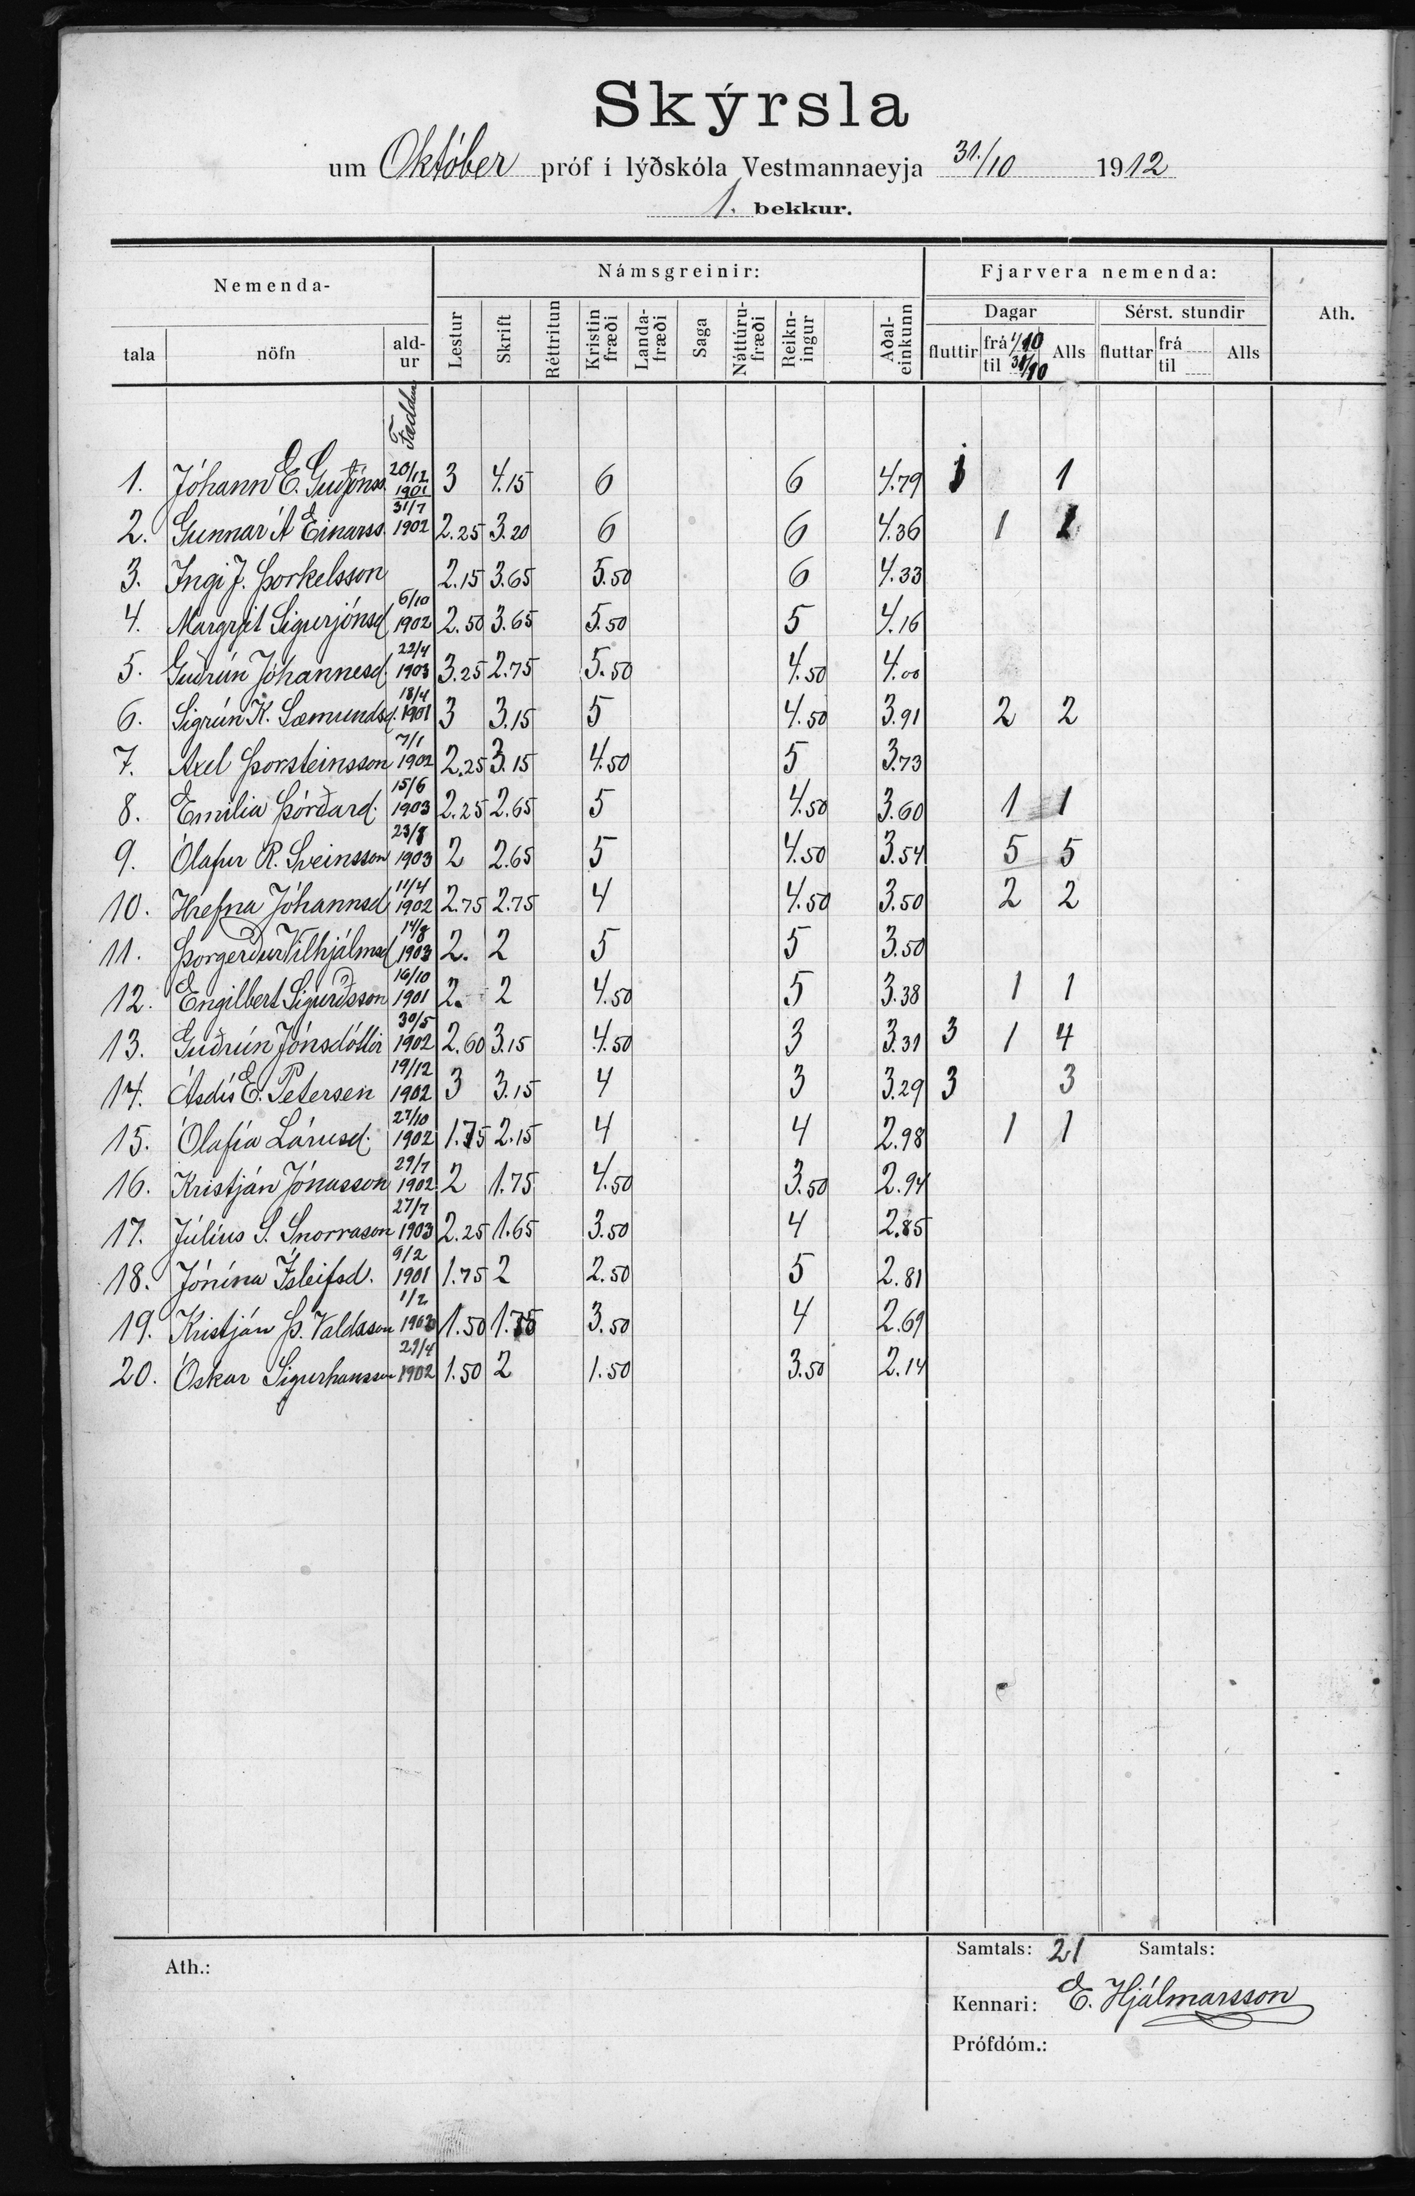 Skýrsla
um Október próf í lýðskóla Vestmannaeyja 31./10 1912
1. bekkur.
Nemenda- Námsgreinir: Fjarvera nemenda: Ath.
Dagar Sérst. stundir
tala nöfn ald-ur Lestur Skrift Réttritun Kristin fræði Landa-fræði Saga Náttúru-fræði Reikn-ingur Aðal-einkunn fluttir frá 1/10 til 31/10 Alls fluttar frá til Alls
Fæddur
1. Jóhann E. Guðjónss. 20/12 1901 3 4.15 6 6 4.79 1 1
2. Gunnar Á Einarss. 31/7 1902 2.25 3.20 6 6 4.36 1 1
3. Ingi J. Þorkelsson 2.15 3.65 5.50 6 4.33
4. Margrjét Sigurjónsd. 6/10 1902 2.50 3.65 5.50 5 4.16
5. Guðrún Jóhannesd. 22/4 1903 3.25 2.75 5.50 4.50 4.00
6. Sigrún K. Sæmundsd. 18/4 1901 3 3.15 5 4.50 3.91 2 2
7. Axel Þorsteinsson 7/1 1902 2.25 3.15 4.50 5 3.73
8. Emilia Þórðard. 15/6 1903 2.25 2.65 5 4.50 3.60 1 1
9. Ólafur R. Sveinsson 23/8 1903 2 2.65 5 4.50 3.54 5 5
10. Hrefna Jóhannsd 11/4 1902 2.75 2.75 4 4.50 3.50 2 2
11. Þorgerður Vilhjálmsd 14/8 1903 2. 2 5 5 3.50
12. Engilbert Sigurðsson 16/10 1901 2. 2 4.50 5 3.38 1 1
13. Guðrún Jónsdóttir 30/5 1902 2.60 3.15 4.50 3 3.31 3 1 4
14. Ásdís E. Petersen 19/12 1902 3 3.15 4 3 3.29 3 3
15. Ólafía Lárusd. 27/10 1902 1.75 2.15 4 4 2.98 1 1
16. Kristján Jónasson 29/7 1902 2 1.75 4.50 3.50 2.94
17. Júlíus S. Snorrason 27/7 1903 2.25 1.65 3.50 4 2.85
18. Jónína Ísleifsd. 9/2 1901 1.75 2 2.50 5 2.81
19. Kristján Þ. Valdason 1/2 1.50 1.75 3.50 4 2.69
20. Óskar Sigurhansson 29/4 1902 1.50 2 1.50 3.50 2.14
Ath.: Samtals: 21 Samtals:
Kennari: E. Hjálmarsson
Prófdóm.: